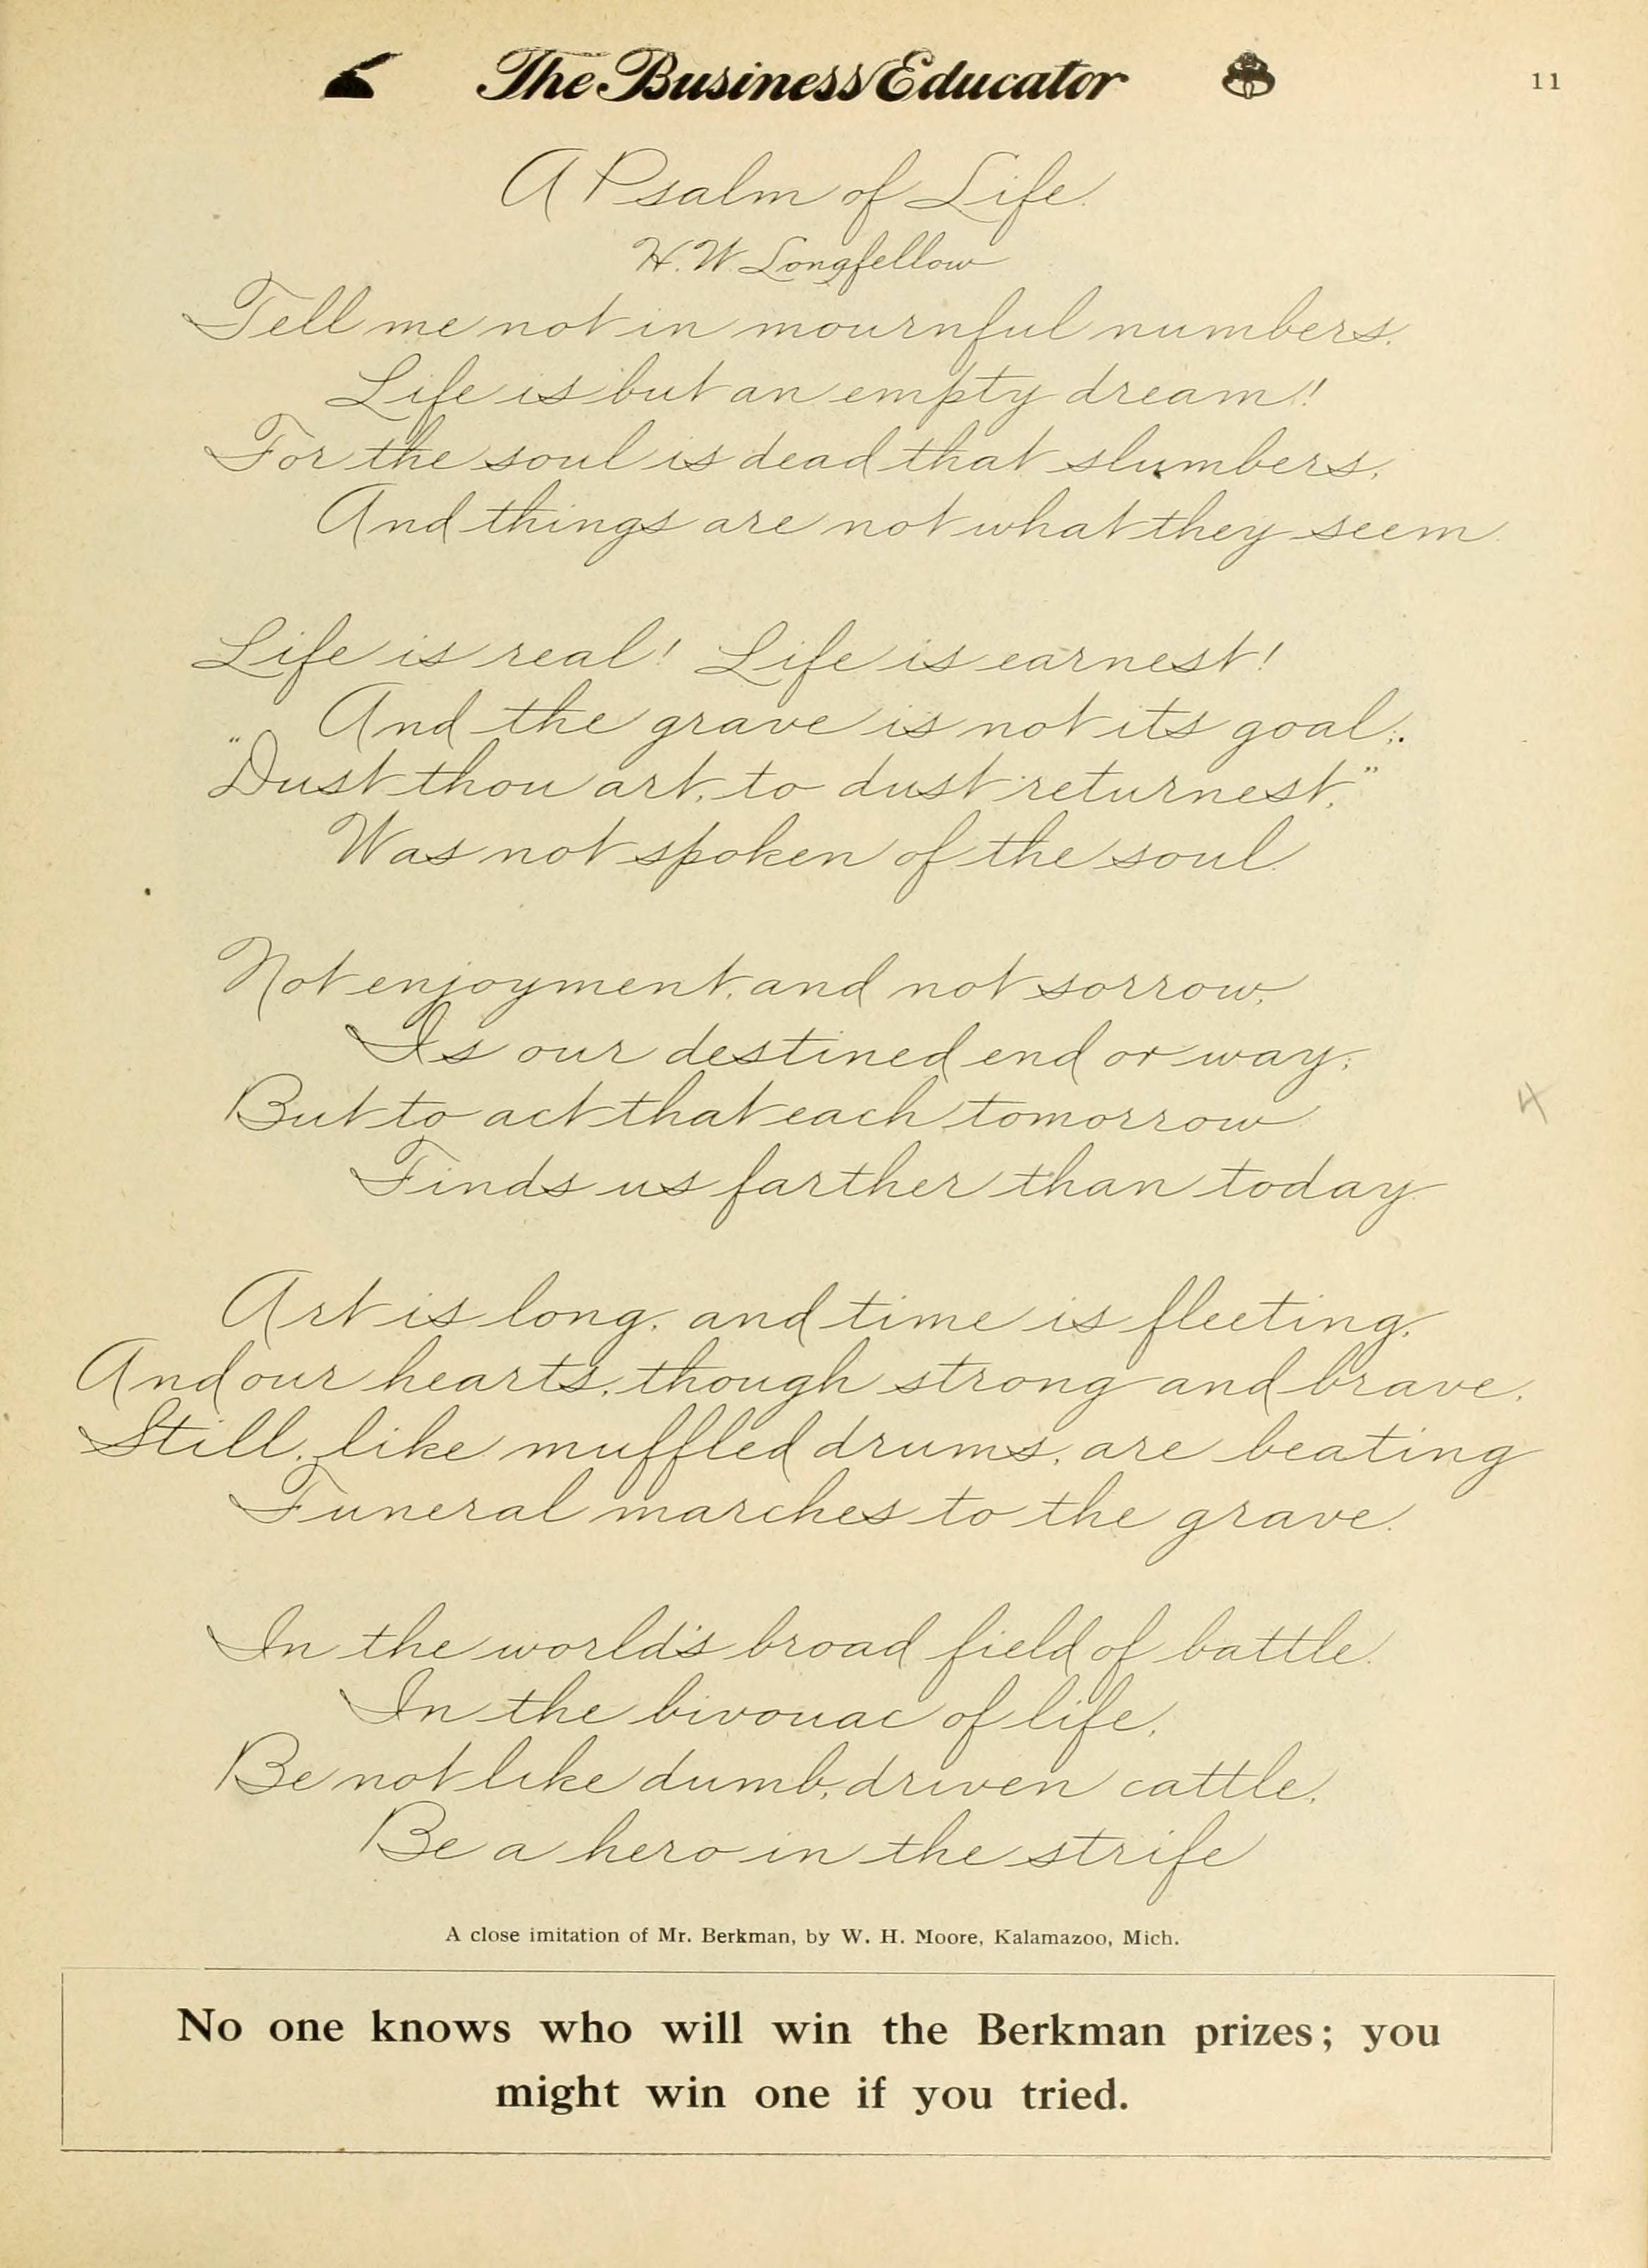 The Business Educator 11
A Psalm of Life.
H. W. Longfellow
Tell me not in mournful numbers.
Life is but an empty dream!!
For the soul is dead that slumbers,
And things are not what they seem.
Life is real! Life is earnest!
And the grave is not its goal;.
"Dust thou art, to dust returnest,"
Was not spoken of the soul.
Not enjoyment, and not sorrow,
Is our destined end or way;
But to act that each tomorrow
Finds us farther than today.
Art is long, and time is fleeting,
And our hearts, though strong and brave,
Still, like muffled drums, are beating
Funeral marches to the grave.
In the world's broad field of battle.
In the bivouac of life,
Be not like dumb, driven cattle,
Be a hero in the strife
4
A close imitation of Mr. Berkman, by W. H. Moore, Kalamazoo, Mich.
No one knows who will win the Berkman prizes; you
might win one if you tried.